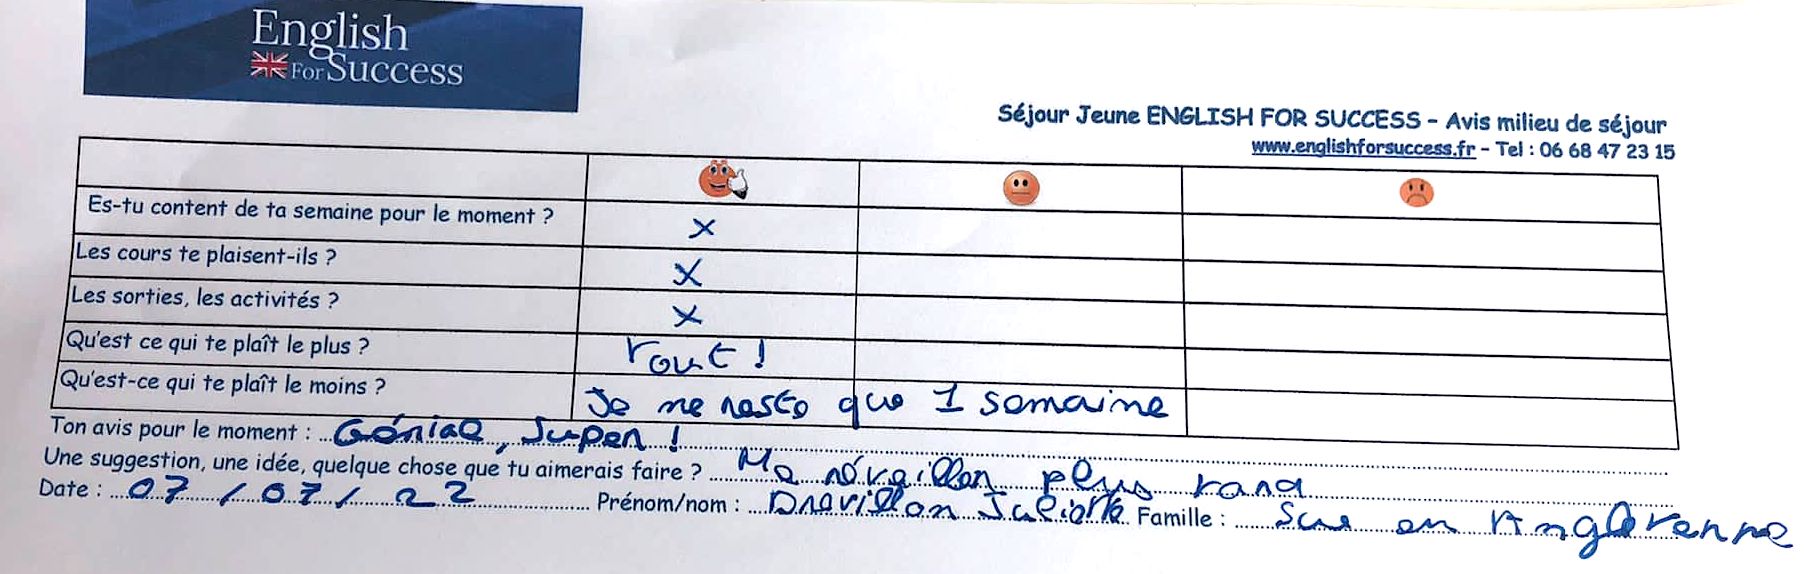 English
For Success
Séjour Jeune ENGLISH FOR SUCCESS - Avis milieu de séjour
www.englishforsuccess.fr - Tel : 06 68 47 23 15
Es-tu content de ta semaine pour le moment ? x
Les cours te plaisent-ils ? x
Les sorties, les activités ? x
Qu'est ce qui te plaît le plus ? Tout !
Qu'est-ce qui te plaît le moins ? Je ne reste que 1 semaine
Ton avis pour le moment : Génial, Super !
Une suggestion, une idée, quelque chose que tu aimerais faire ? Me réveiller plus tard
Date : 07/07/22 Prénom/nom : Juliette Famille : en Angleterre